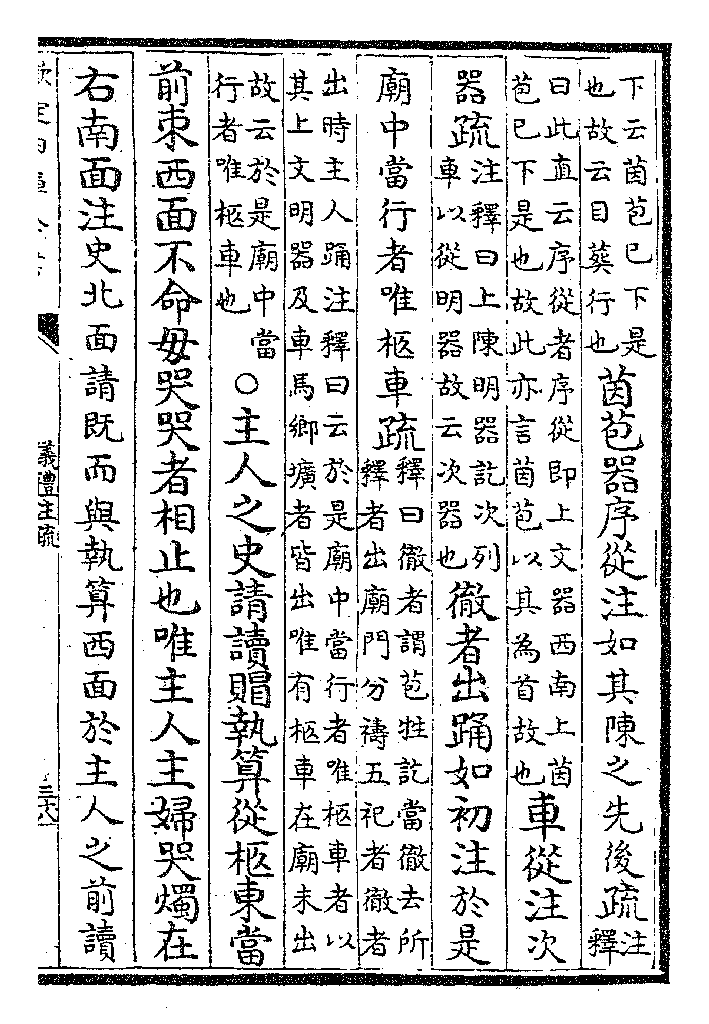 下云茵苞已下是
也故云目葬行也
茵苞器序從注如其陳之先後疏
注
釋
曰此直云序從者序從即上文器西南上茵
苞已下是也故此亦言茵苞以其為首故也
車從注次
器疏
注釋曰上陳明器訖次列
車以從明器故云次器也
徹者出踊如初注於是
廟中當行者唯柩車疏
釋曰徹者謂苞牲訖當徹去所
釋者出廟門分禱五祀者徹者
出時主人踊注釋曰云於是廟中當行者唯柩車者以
其上文明器及車馬鄉壙者皆出唯有柩車在廟未出
故云於是廟中當
行者唯柩車也
○主人之史請讀賵執算從柩東當
前束西面不命毋哭哭者相止也唯主人主婦哭燭在
右南面注史北面請既而與執算西面於主人之前讀
欽定四庫全書
儀禮注疏